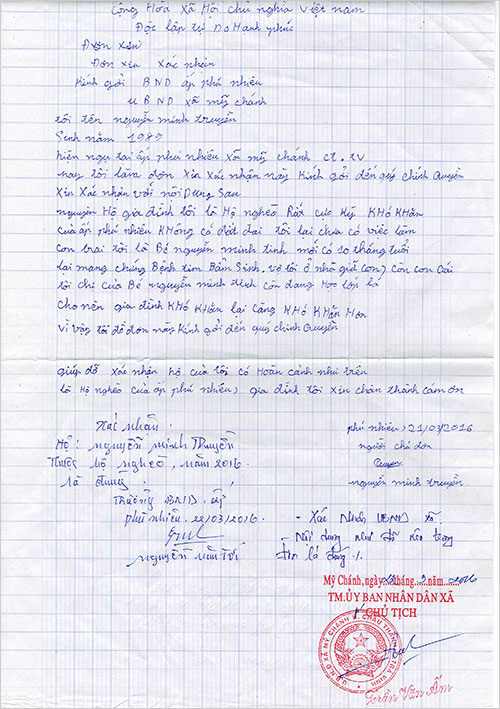 Cộng Hòa Xã Hội chủ nghĩa Việt nam
Độc lập tự Do Hanh phúc
Đơn xin
Đơn xin xác nhận
Kính gởi BND ấp phú nhiêu
u BND xã mỹ chánh
tôi tên nguyễn minh truyền
Sinh năm 1989
hiện ngụ tại ấp phú nhiêu xã mỹ chánh ct. tv
nay tôi làm đơn xin xác nhận này Kính gởi đến quý chính quyền
xin xác nhận với nôi Dung Sau
nguyên Hộ gia đình tôi là Hộ nghèo Rất cực Kỳ KHó KHăn
của ấp phú nhiêu KHông có đất đai tôi lại chưa có việc làm
con trai tôi là Bé nguyễn minh tính mới có 10 tháng tuổi
lại mang chứng Bệnh tim Bẩm Sinh. vợ tôi ở nhà giữ con, còn con Gái
tôi chị của Bé nguyễn minh tính còn đang Học lớp lá
cho nên gia đình KHó KHăn lại càng KHó KHăn Hơn
vì vậy tôi đơn này Kính gởi đến quý chính quyền
giúp đỡ xác nhận hộ của tôi có Hoàn cảnh như trên
là Hộ nghèo của ấp phú nhiêu, gia đình tôi xin chân thành cám ơn
Xác nhận.
Hộ: nguyễn minh Truyền
Thuộc hộ nghèo, năm 2016
là đúng.
Trưởng BND. ấp
phú nhiêu. 22/03/2016.
nguyễn văn Tới
phú nhiêu, 21/03/2016
người chủ đơn
nguyễn minh truyền
- Xác Nhận UBND xã
- Nội dung như đã nêo trong
đơn là đúng ./.
Mỹ Chánh, ngày 22 tháng 3 năm 2016
TM.ỦY BAN NHÂN DÂN XÃ
CHỦ TỊCH
U.B.N.D XÃ MỸ CHÁNH H. CHÂU THÀNH T. TRÀ VINH
Trần Văn Ấm